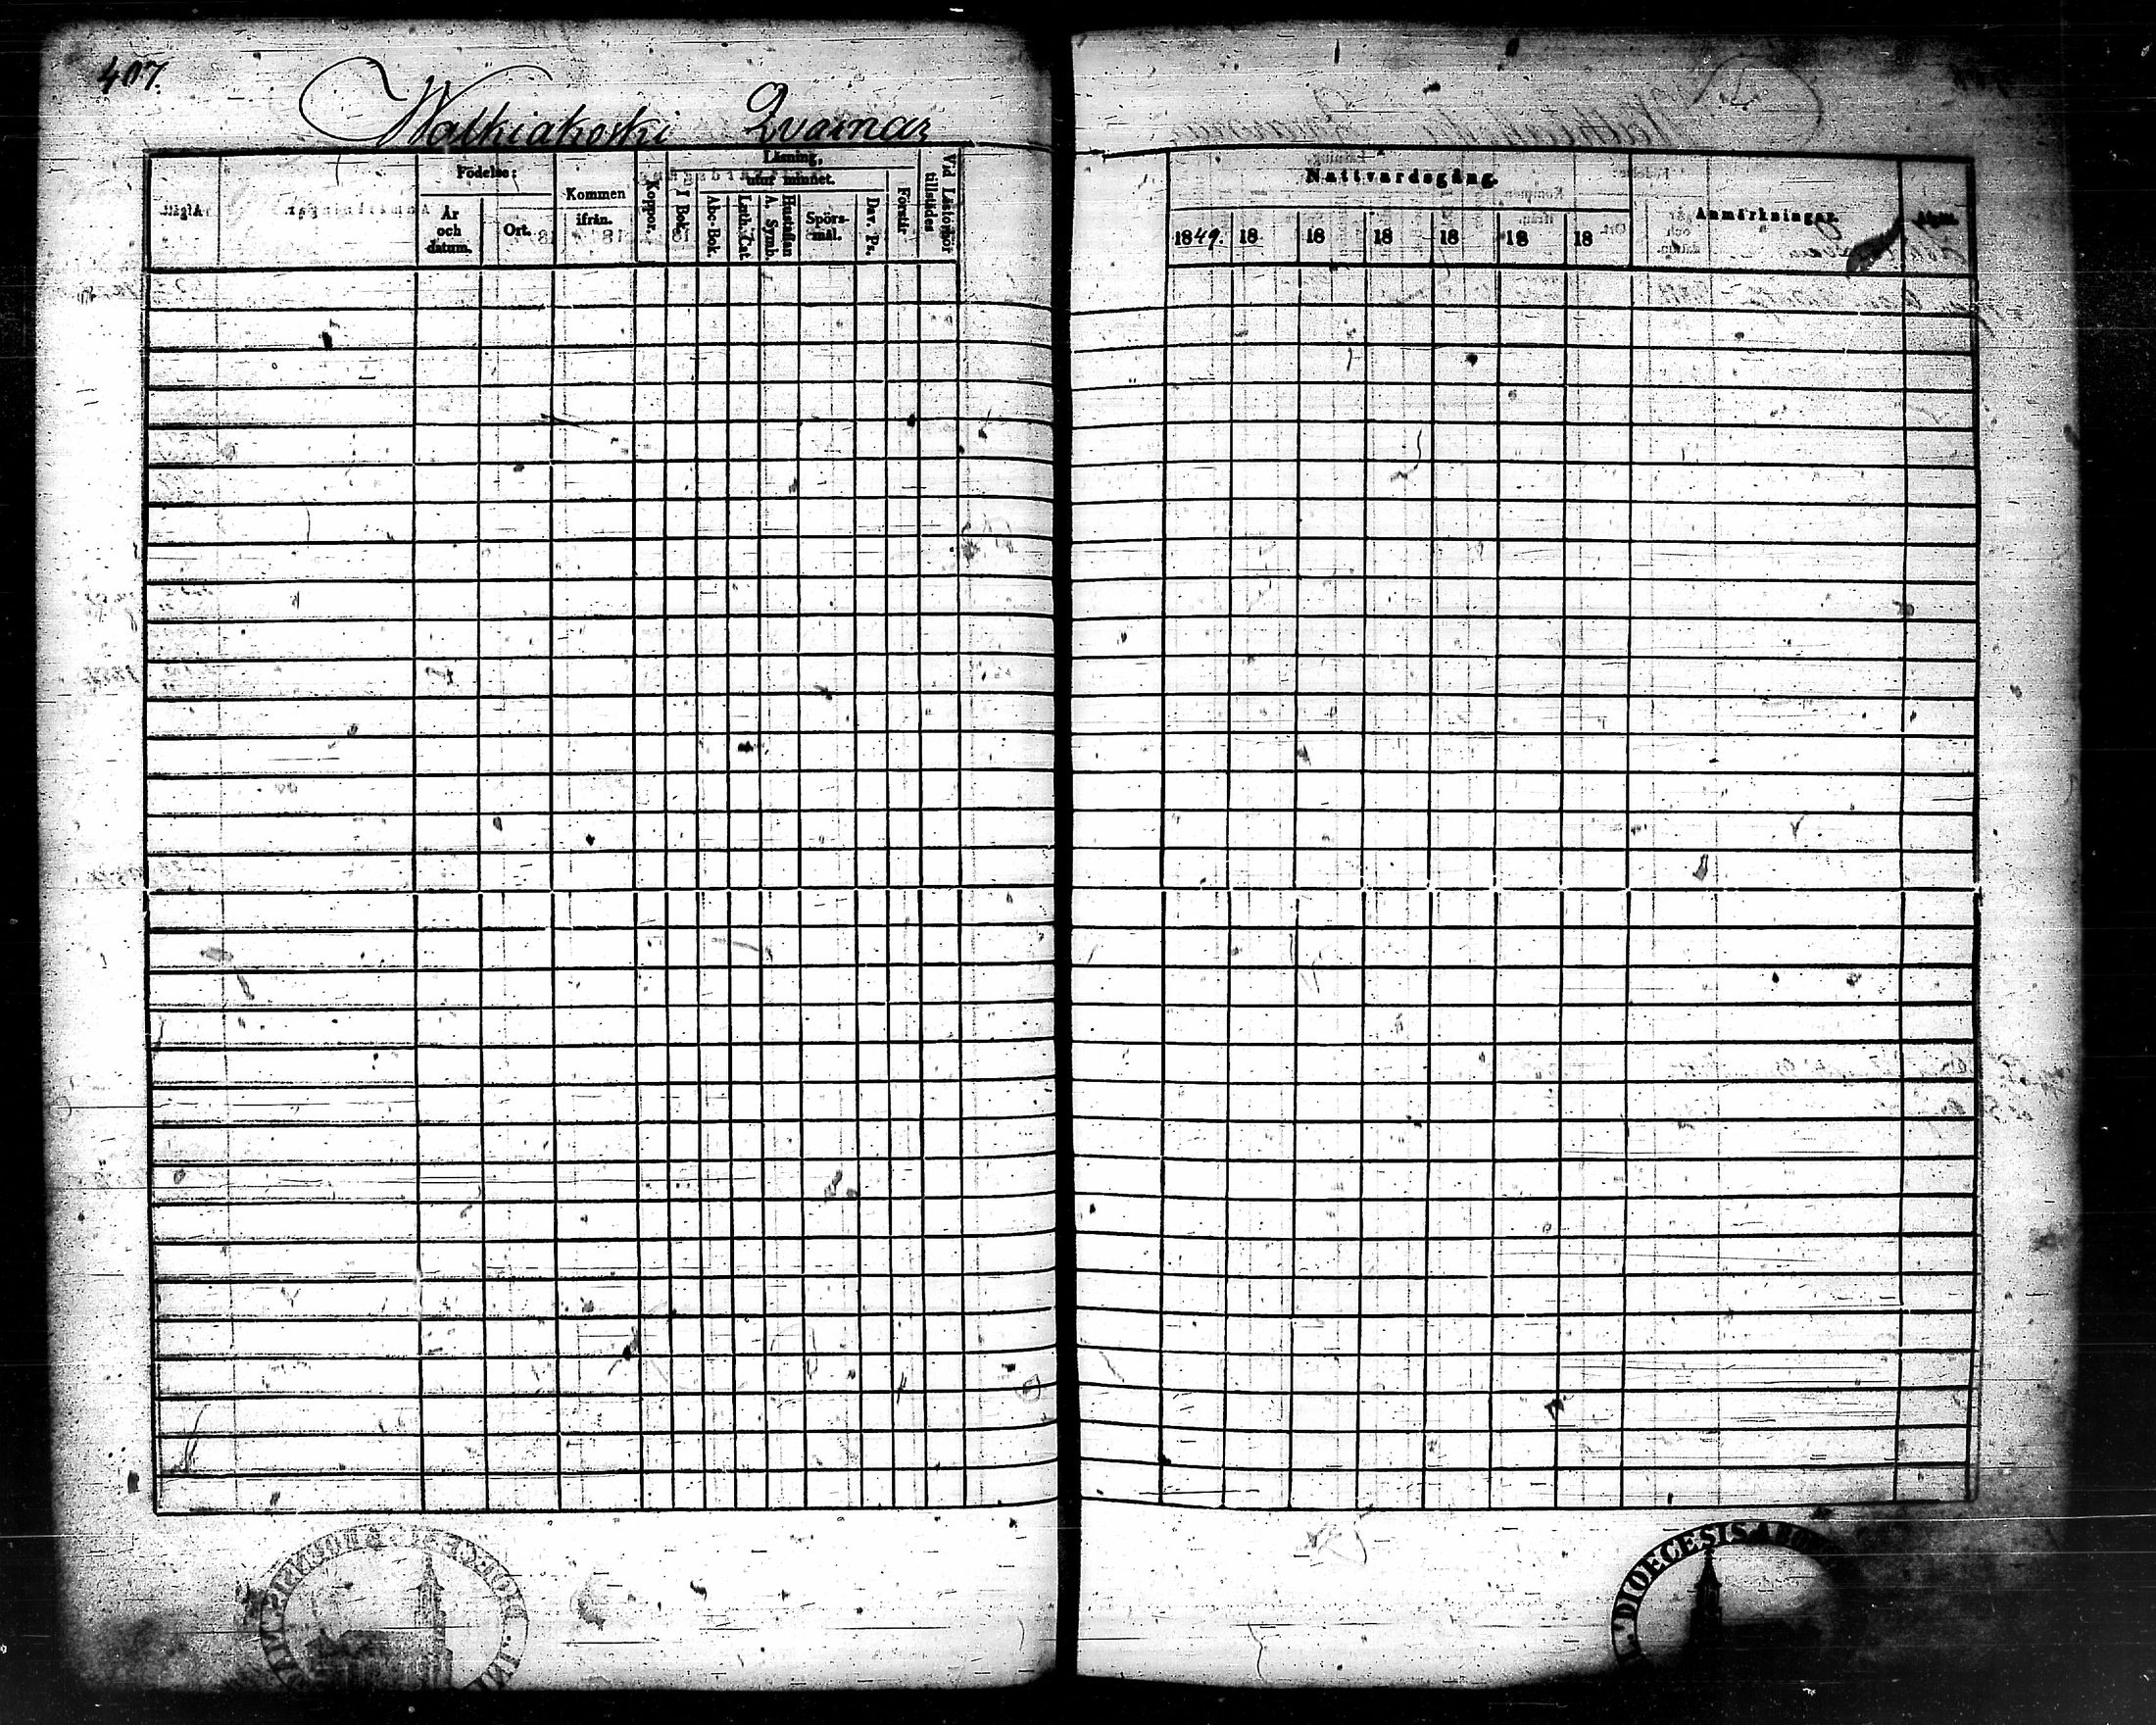 407.
Walkiakoski Qvarnar
Födelse:
År och datum.
Ort.
Kommen ifrån.
Koppor.
Läsning,
utur minnet.
I Bok.
Abc-Bok.
Luth. Cat.
Hustaflan A. Symb.
Spörs-mål.
Dav. Ps.
Förstår
Vid Läseförhör tillstädes
Nattvardsgång.
1849. 18 18 18 18 18 18
Anmärkningar.
DIOECESIS ABOENSIS